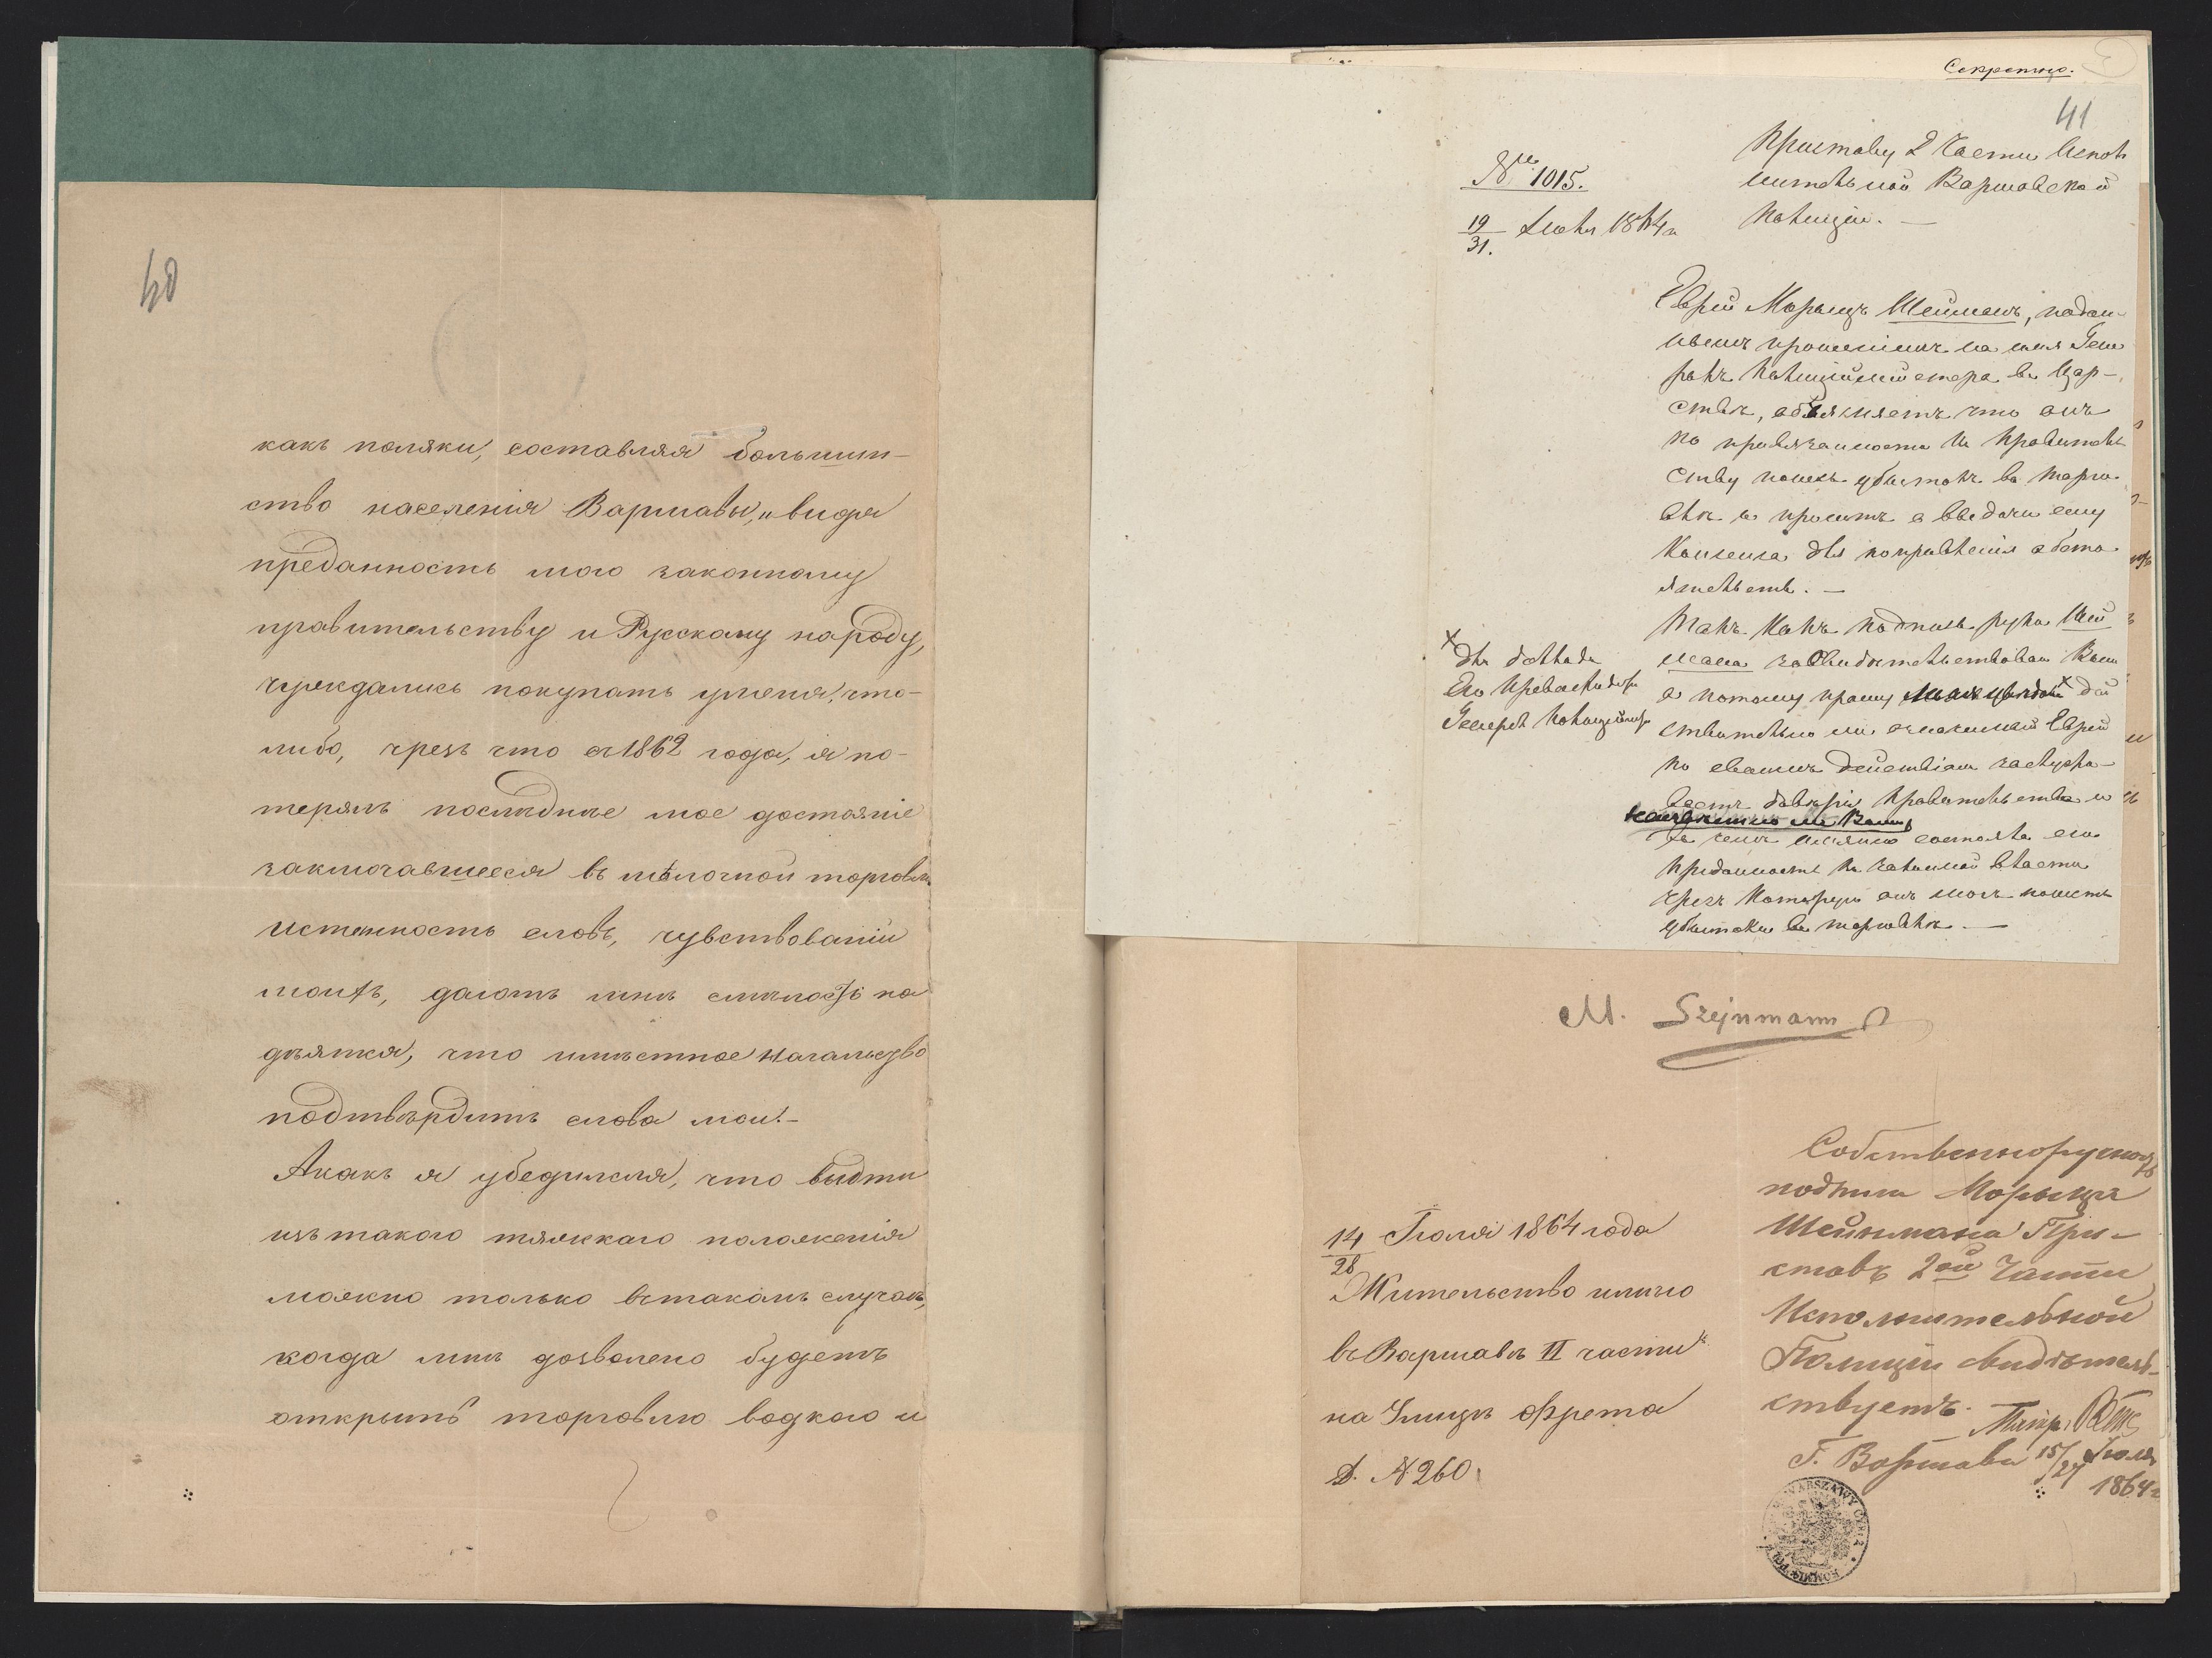 40
какъ поляки, составляя большин-
ство населенія Варшавы, и видя
преданность мою законному
правительству и Русскому народу,
чуждались покупать уменя, что-
либо, чрезъ что съ 1862 года, я по-
терялъ послѣдніе мое достояніе
заключавшееся въ мѣлочной торговли
Истенность словъ, чувствованій
моихъ, даютъ мнѣ смѣлость на
дѣятся, что имѣстное началъство
подтвѣрдитъ слова мои!-
Акакъ я убедился, что выдти
изъ такого тяжкаго положенія
можно только втакомъ случаѣ,
когда мнѣ дозволено будетъ
открыть торговлю водкою и
Секретно.
41
Приставу 2 Части Испол
нительной Варшавской
Полиціи. —
№ 1015.
19/31. Іюля 1864 г
Еврей Морыцъ Шейманъ, подан-
нымъ прошеніемъ на имя Гене
ралъ Полиціймейстера въ Цар-
ствѣ, объясняетъ что онъ
по привязанности къ Правитель
ству понесъ убытокъ въ торго
влѣ и проситъ о выдачи ему
Консенса для поправленія обсто
ятельствъ. —
Такъ какъ подпись руки Шей
мана засвидѣтельствована Вами
а потому прошу дѣй
ствительно ли означенный Еврей
по своимъ действіямъ заслужи-
ваетъ довѣрія Правительства и
въ чемъ имянно состояла его
преданность къ законной власти
чрезъ которую онъ могъ понесть
убытокъ въ торговлѣ. —
× для доклада
Его Превосходит
Генералъ Полиціймейст
M. Szejnmann
14/28 Іюля 1864 года
Жительство имѣю
въ Варшавѣ II части
на Улицѣ Фрета
Д. № 260
Собственноручною
подпись Морыца
Шейнмана При-
ставъ 2ой Части
Исполнительной
Полиціи свидѣтель-
ствуетъ.
Г. Варшава 15/27 Іюля
1864 г
WARSZAWY